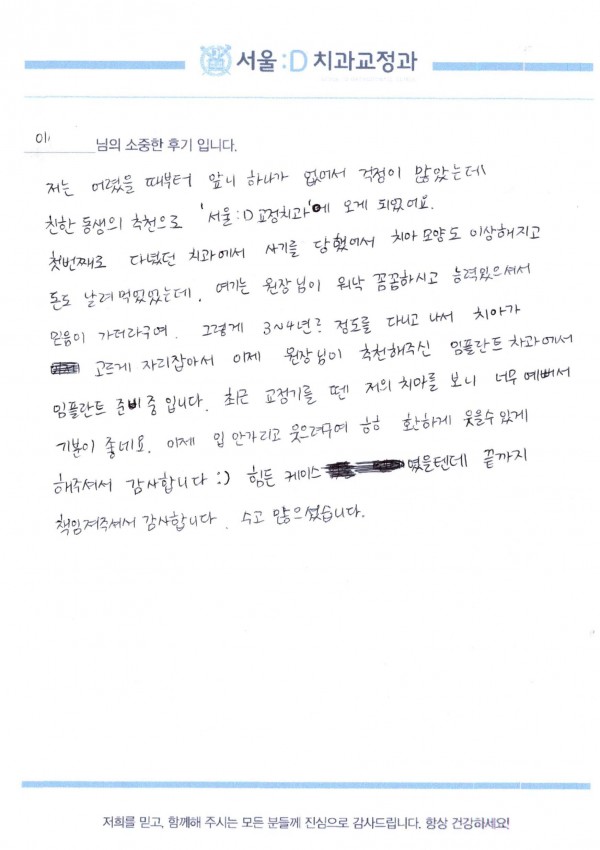 서울:D 치과교정과
이
님의 소중한 후기 입니다.
저는 어렸을 때부터 앞니 하나가 없어서 걱정이 많았는데
친한 동생의 추천으로 '서울:D교정치과'에 오게 되었어요.
첫번째로 다녔던 치과에서 사기를 당했어서 치아 모양도 이상해지고
돈도 날려먹었었는데, 여기는 원장님이 워낙 꼼꼼하시고 능력있으셔서
믿음이 가더라구여. 그렇게 3~4년? 정도를 다니고 나서 치아가
고르게 자리잡아서 이제 원장님이 추천해주신 임플란트 치과에서
임플란트 준비중입니다. 최근 교정기를 뗀 저의 치아를 보니 너무 예뻐서
기분이 좋네요. 이제 입 안가리고 웃으려구여 ㅎㅎ 환하게 웃을수 있게
해주셔서 감사합니다 :) 힘든 케이스 였을텐데 끝까지
책임져주셔서 감사합니다. 수고 많으셨습니다.
저희를 믿고, 함께해 주시는 모든 분들께 진심으로 감사드립니다. 항상 건강하세요!